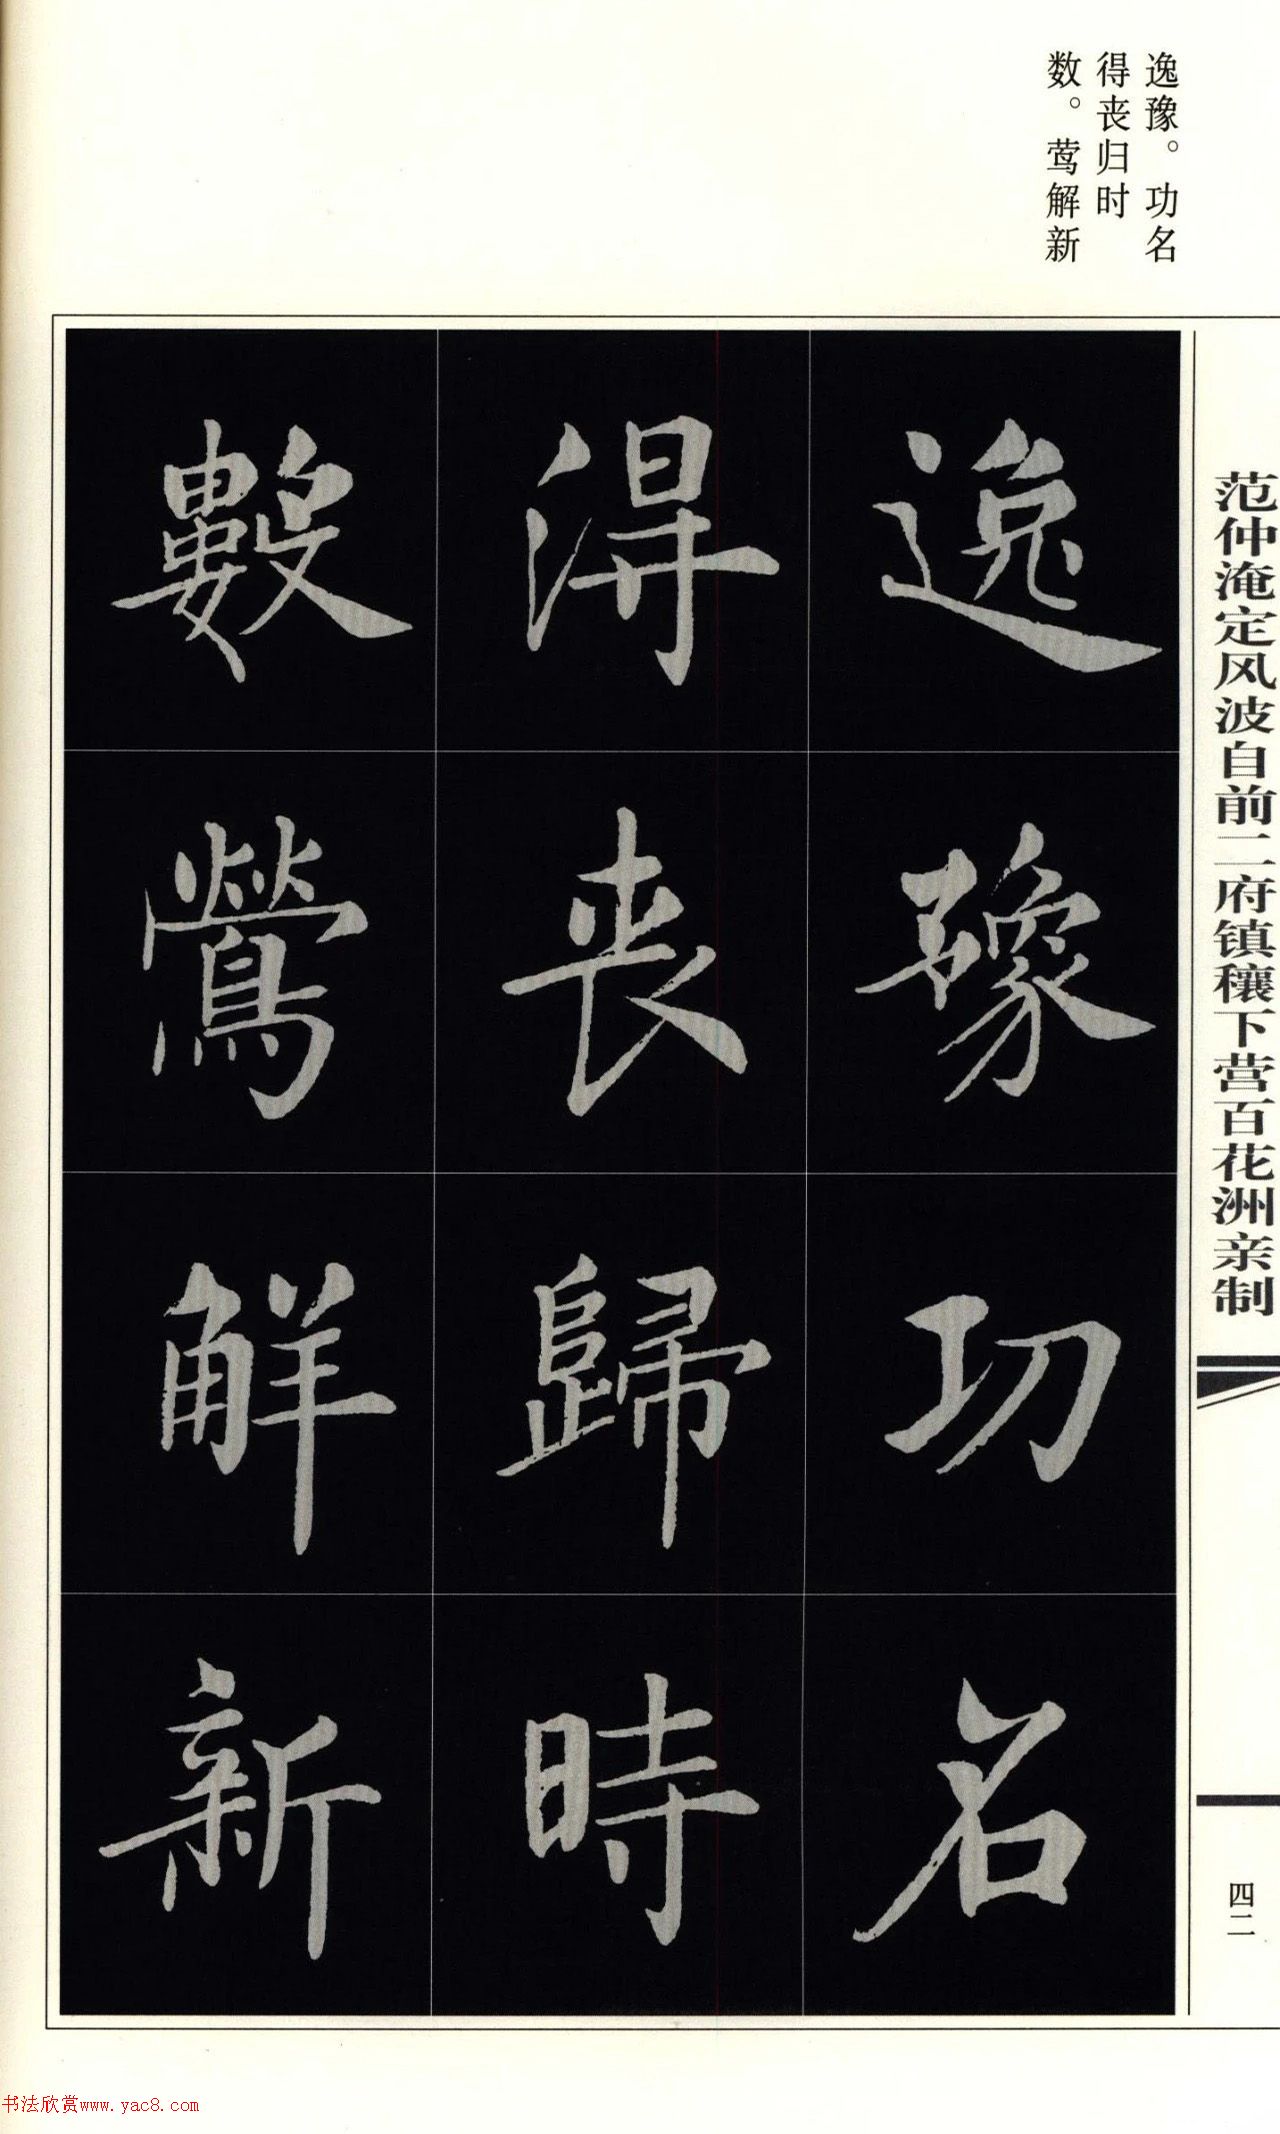 逸豫。功名
得丧归时
数。莺解新
范仲淹定风波自前二府镇穰下营百花洲亲制
逸豫功名
得喪歸時
數鶯解新
四二
书法欣赏www.yac8.com